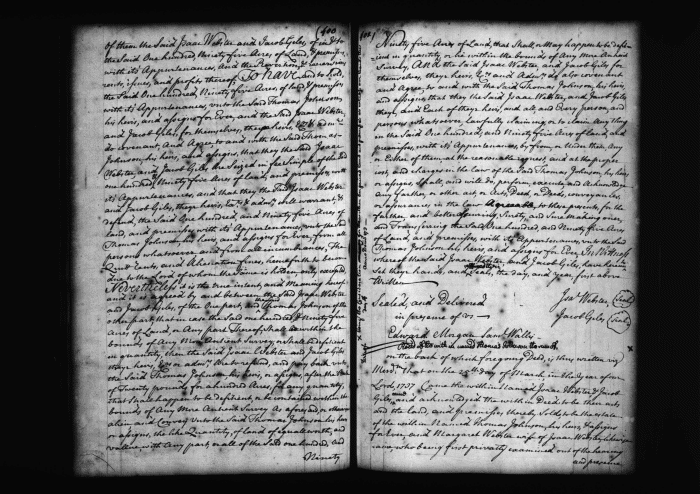 (400
of them the Said Isaac Webster and Jacob Giles, of in & to
the Said One hundred, Ninety five Acres, of Land, & premises
with its Appurtenances, and the Reversion & reversions
rents, issues, and profits thereof To have and to hold,
the Said One hundred, Ninety five Acres, of land & premises
with its Appurtenances, unto the Said Thomas Johnson,
his heirs, and assigns for Ever, and the Said Isaac Webster
and Jacob Giles, for themselves, their heirs, Exrs & admrs
do covenant, and Agree to and with the Said Thomas
Johnson, his heirs, and assigns, that they the Said Isaac
Webster, and Jacob Giles, the Seized in fee Simple of the Said
one hundred, Ninety five Acres, of land, and premises, with
its Appurtenances, and that they the Said Isaac Webster
and Jacob Giles, their heirs, Exrs & admrs will warrant, &
defend, the Said One hundred, and Ninety five Acres of
land, and premises with its Appurtenances, unto the Said
Thomas Johnson, his heirs, and assigns for Ever, from all
persons whatsoever, and from all incumbrances, The
Quit Rents, and Alienation fines, hereafter to become
due to the Lord of whom the Same is holden, only excepted
Nevertheless it is the true intent, and Meaning hereof
and it is agreed by and between the Said Isaac Webster
and Jacob Giles, of the One part, and Thomas Johnson of the
other part, that in case the Said one hundred & Ninety five
Acres of Land, or Any part Thereof shall be within the
bounds of Any More Antient Survey or shall be deficient
in quantity, then the Said Isaac Webster, and Jacob Giles
their heirs, Exrs or admrs Shall repaid, and pay back unto
the Said Thomas Johnson, his heirs, or assigns, after the rate
of Twenty pounds, for a hundred Acres, for any quantity,
that shall happen to be deficient, or be contained within the
bounds of Any More Antient Survey As aforesaid, or otherwise
alien and Convey Unto the Said Thomas Johnson his heirs
or assigns, the like Quantity, of land of equal worth, and
value, with Any part, or all of the Said one hundred, and
Ninety
Ninety five Acres of Land, that Shall, or May happen to be deficient
in quantity, or lie within the bounds of Any More Antient
Survey, AND the Said Isaac Webster, and Jacob Giles for
themselves, their heirs, Exrs and Admrs do also covenant
and Agree, to and with the Said Thomas Johnson, his heirs
and assigns that they the Said Isaac Webster, and Jacob Giles
they and Each of their heirs, and all and Every person, and
persons whatsoever, Lawfully Claiming or to claim Any thing
in the Said One hundred, and Ninety five Acres of land and
premises, with its Appurtenances, by from, or Under them Any
or Either of them at the reasonable request, and at the proper
cost, and charges in the law of the Said Thomas Johnson, his heirs,
or assigns, Shall, and will do, perform, execute and Acknowledge
any further, or other act, or Acts, Deed, or Deeds, conveyances,
or Assurance in the law Agreeable, to these presents, for the
further, and better Securing, Surety, and Sure Making over,
and Transferring the Said One hundred and Ninety five Acres
of Land, and premises, with its Appurtenances, unto the Said
Thomas Johnson his heirs, and assigns for Ever, In Witness
whereof the Said Isaac Webster, and Jacob Giles, have hereunto
Set their hands, and Seals, the day, and year, first above
Written
Sealed, and Delivered
in presence of us
Isa. Webster (Seal)
Jacob Giles (Seal)
Edward Morgan Saml. Wallis
on the back of which foregoing Deed, is thus, written viz
Memd. that on the 24th day of March, in the year of our
Lord, 1737 Came the within Named Isaac Webster & Jacob
Giles, and acknowledged the within Deed to be their act
and the land, and premises, thereby Sold, to be the estate
of the within Named Thomas Johnson, his heirs, & assigns
for Ever, and Margaret Webster wife of Isaac Webster
who being first privately examined out of the hearing
and presence